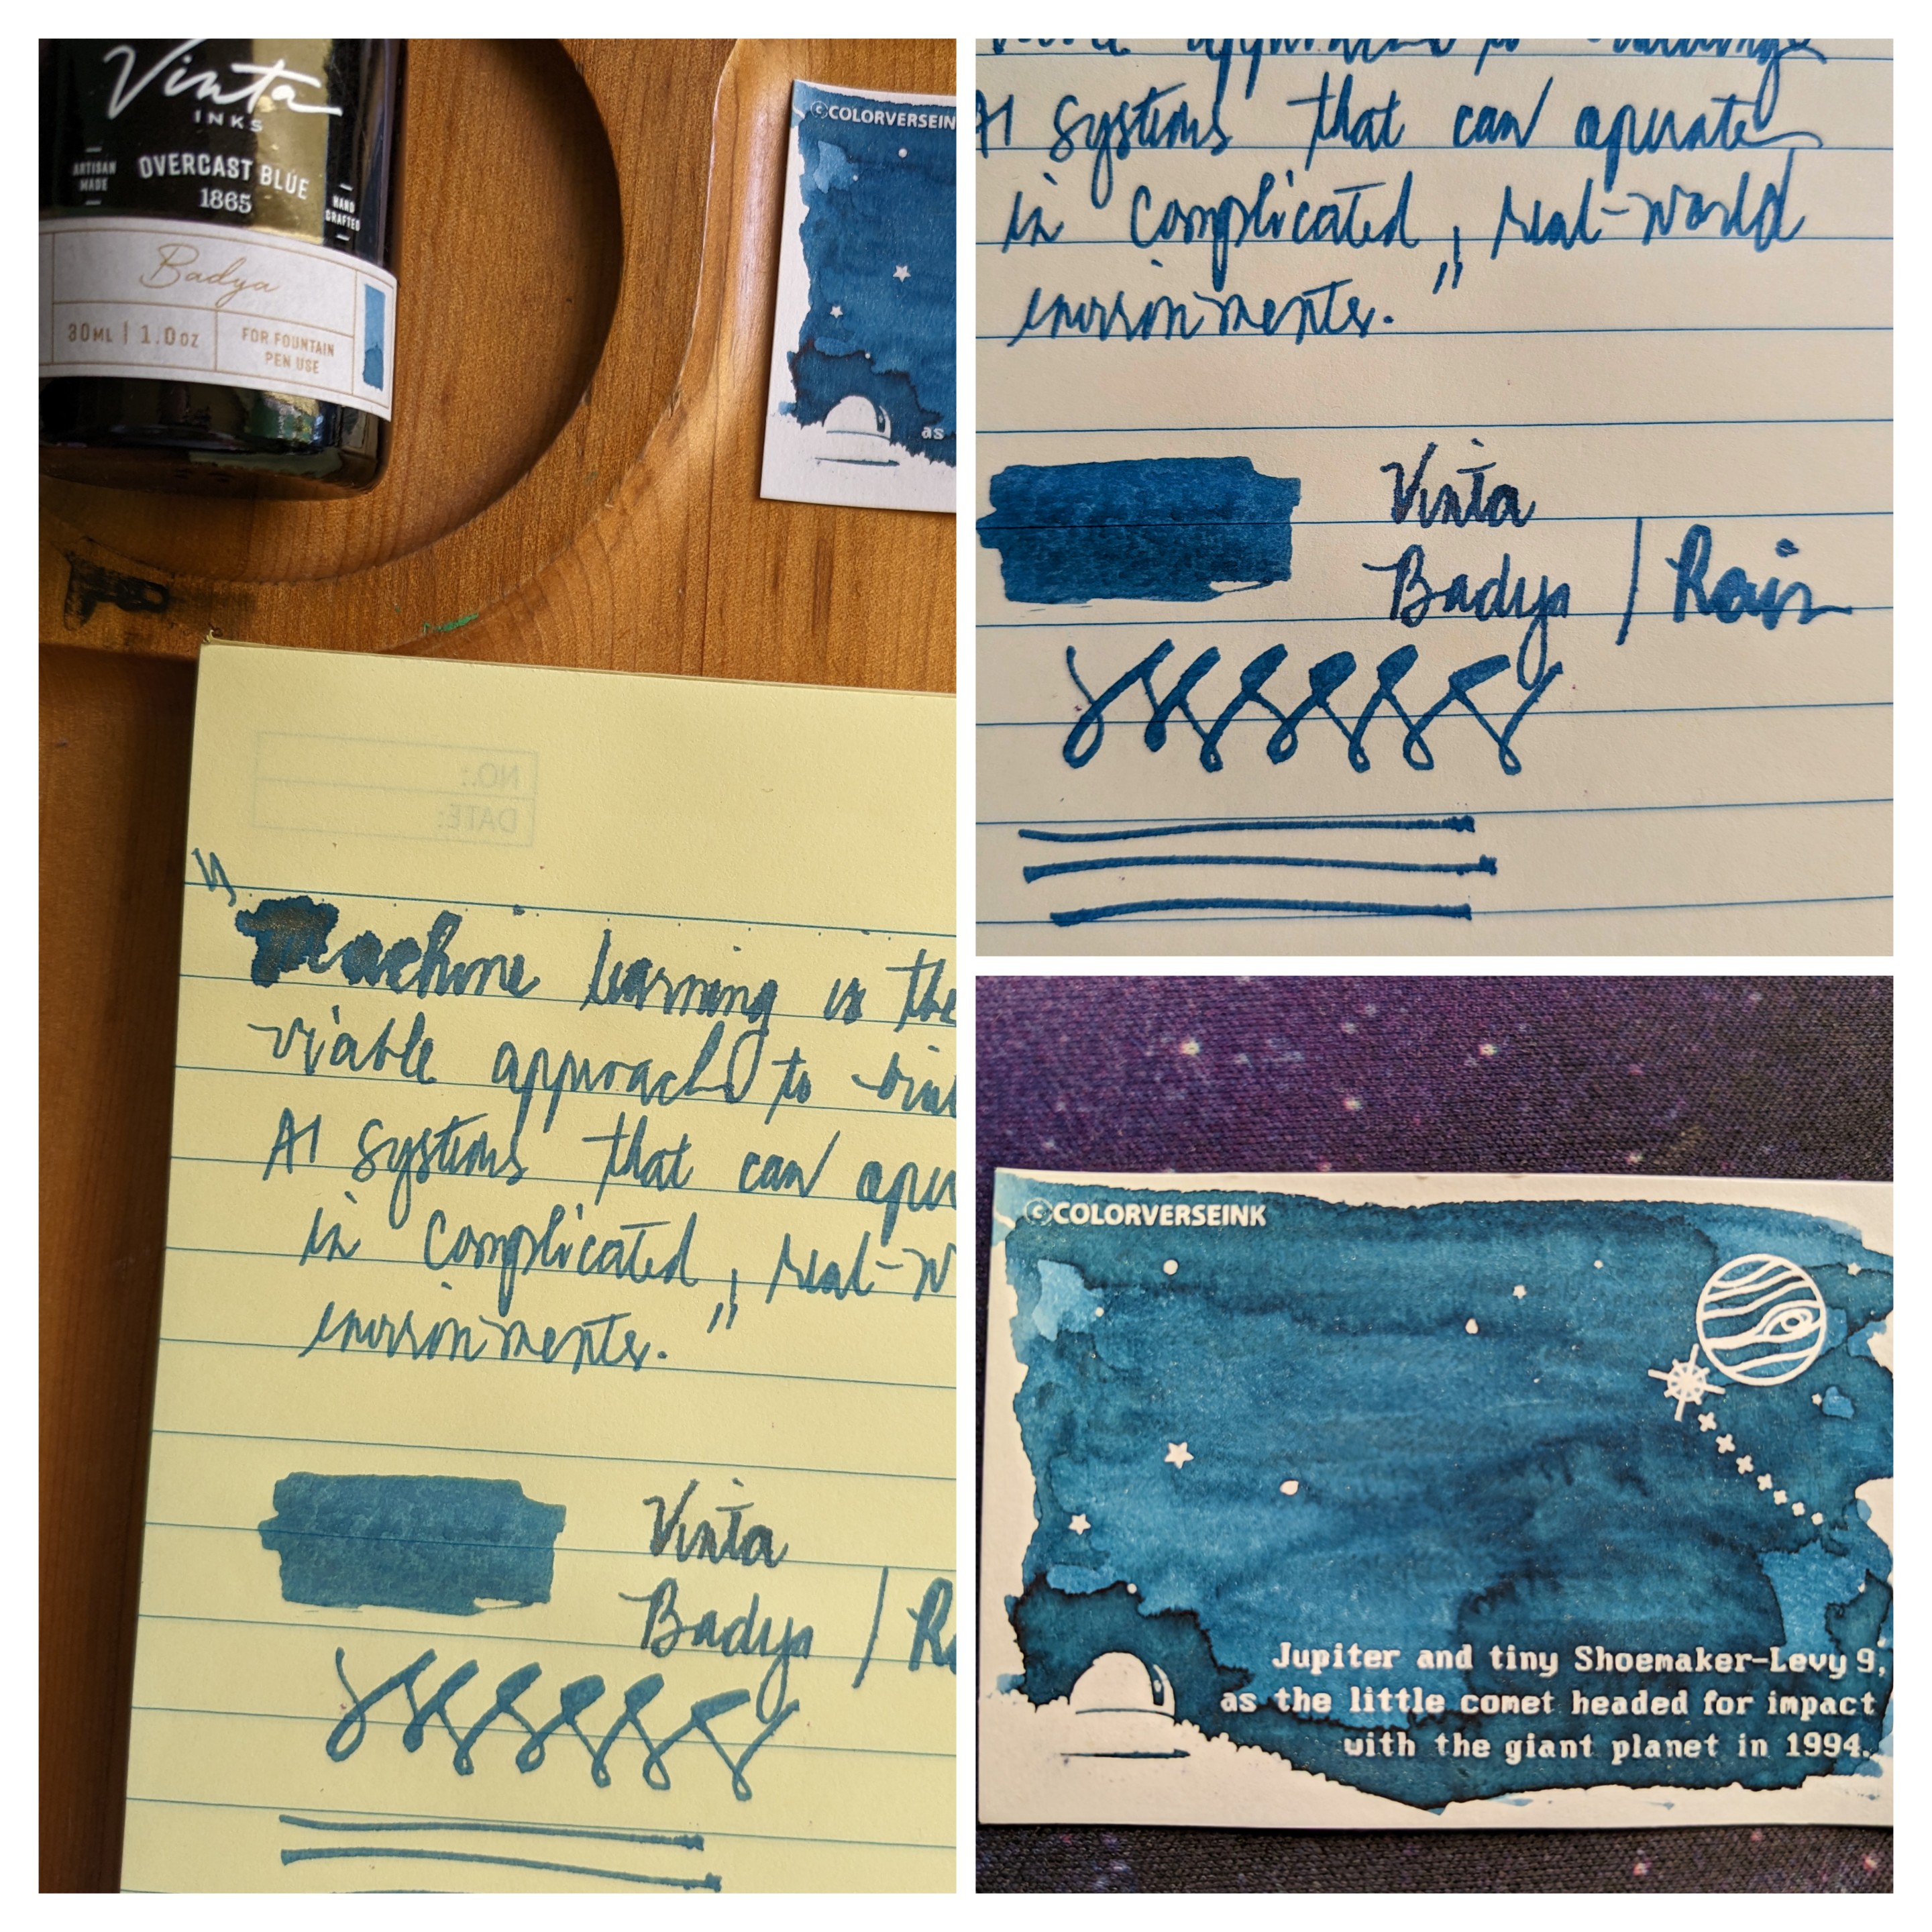 Vinta
INKS
ARTISAN
MADE
OVERCAST BLUE
1865
HAND
CRAFTED
Badya
30ML | 1.0 OZ
FOR FOUNTAIN
PEN USE
©COLORVERSEIN
as
NO.:
DATE:
"Machine learning is the
viable approach to
AI systems that can
in complicated, real-w
environments."
Vinta
Badya /
AI systems that can operate
in complicated, real-world
environments."
Vinta
Badya / Rain
©COLORVERSEINK
Jupiter and tiny Shoemaker-Levy 9,
as the little comet headed for impact
with the giant planet in 1994.